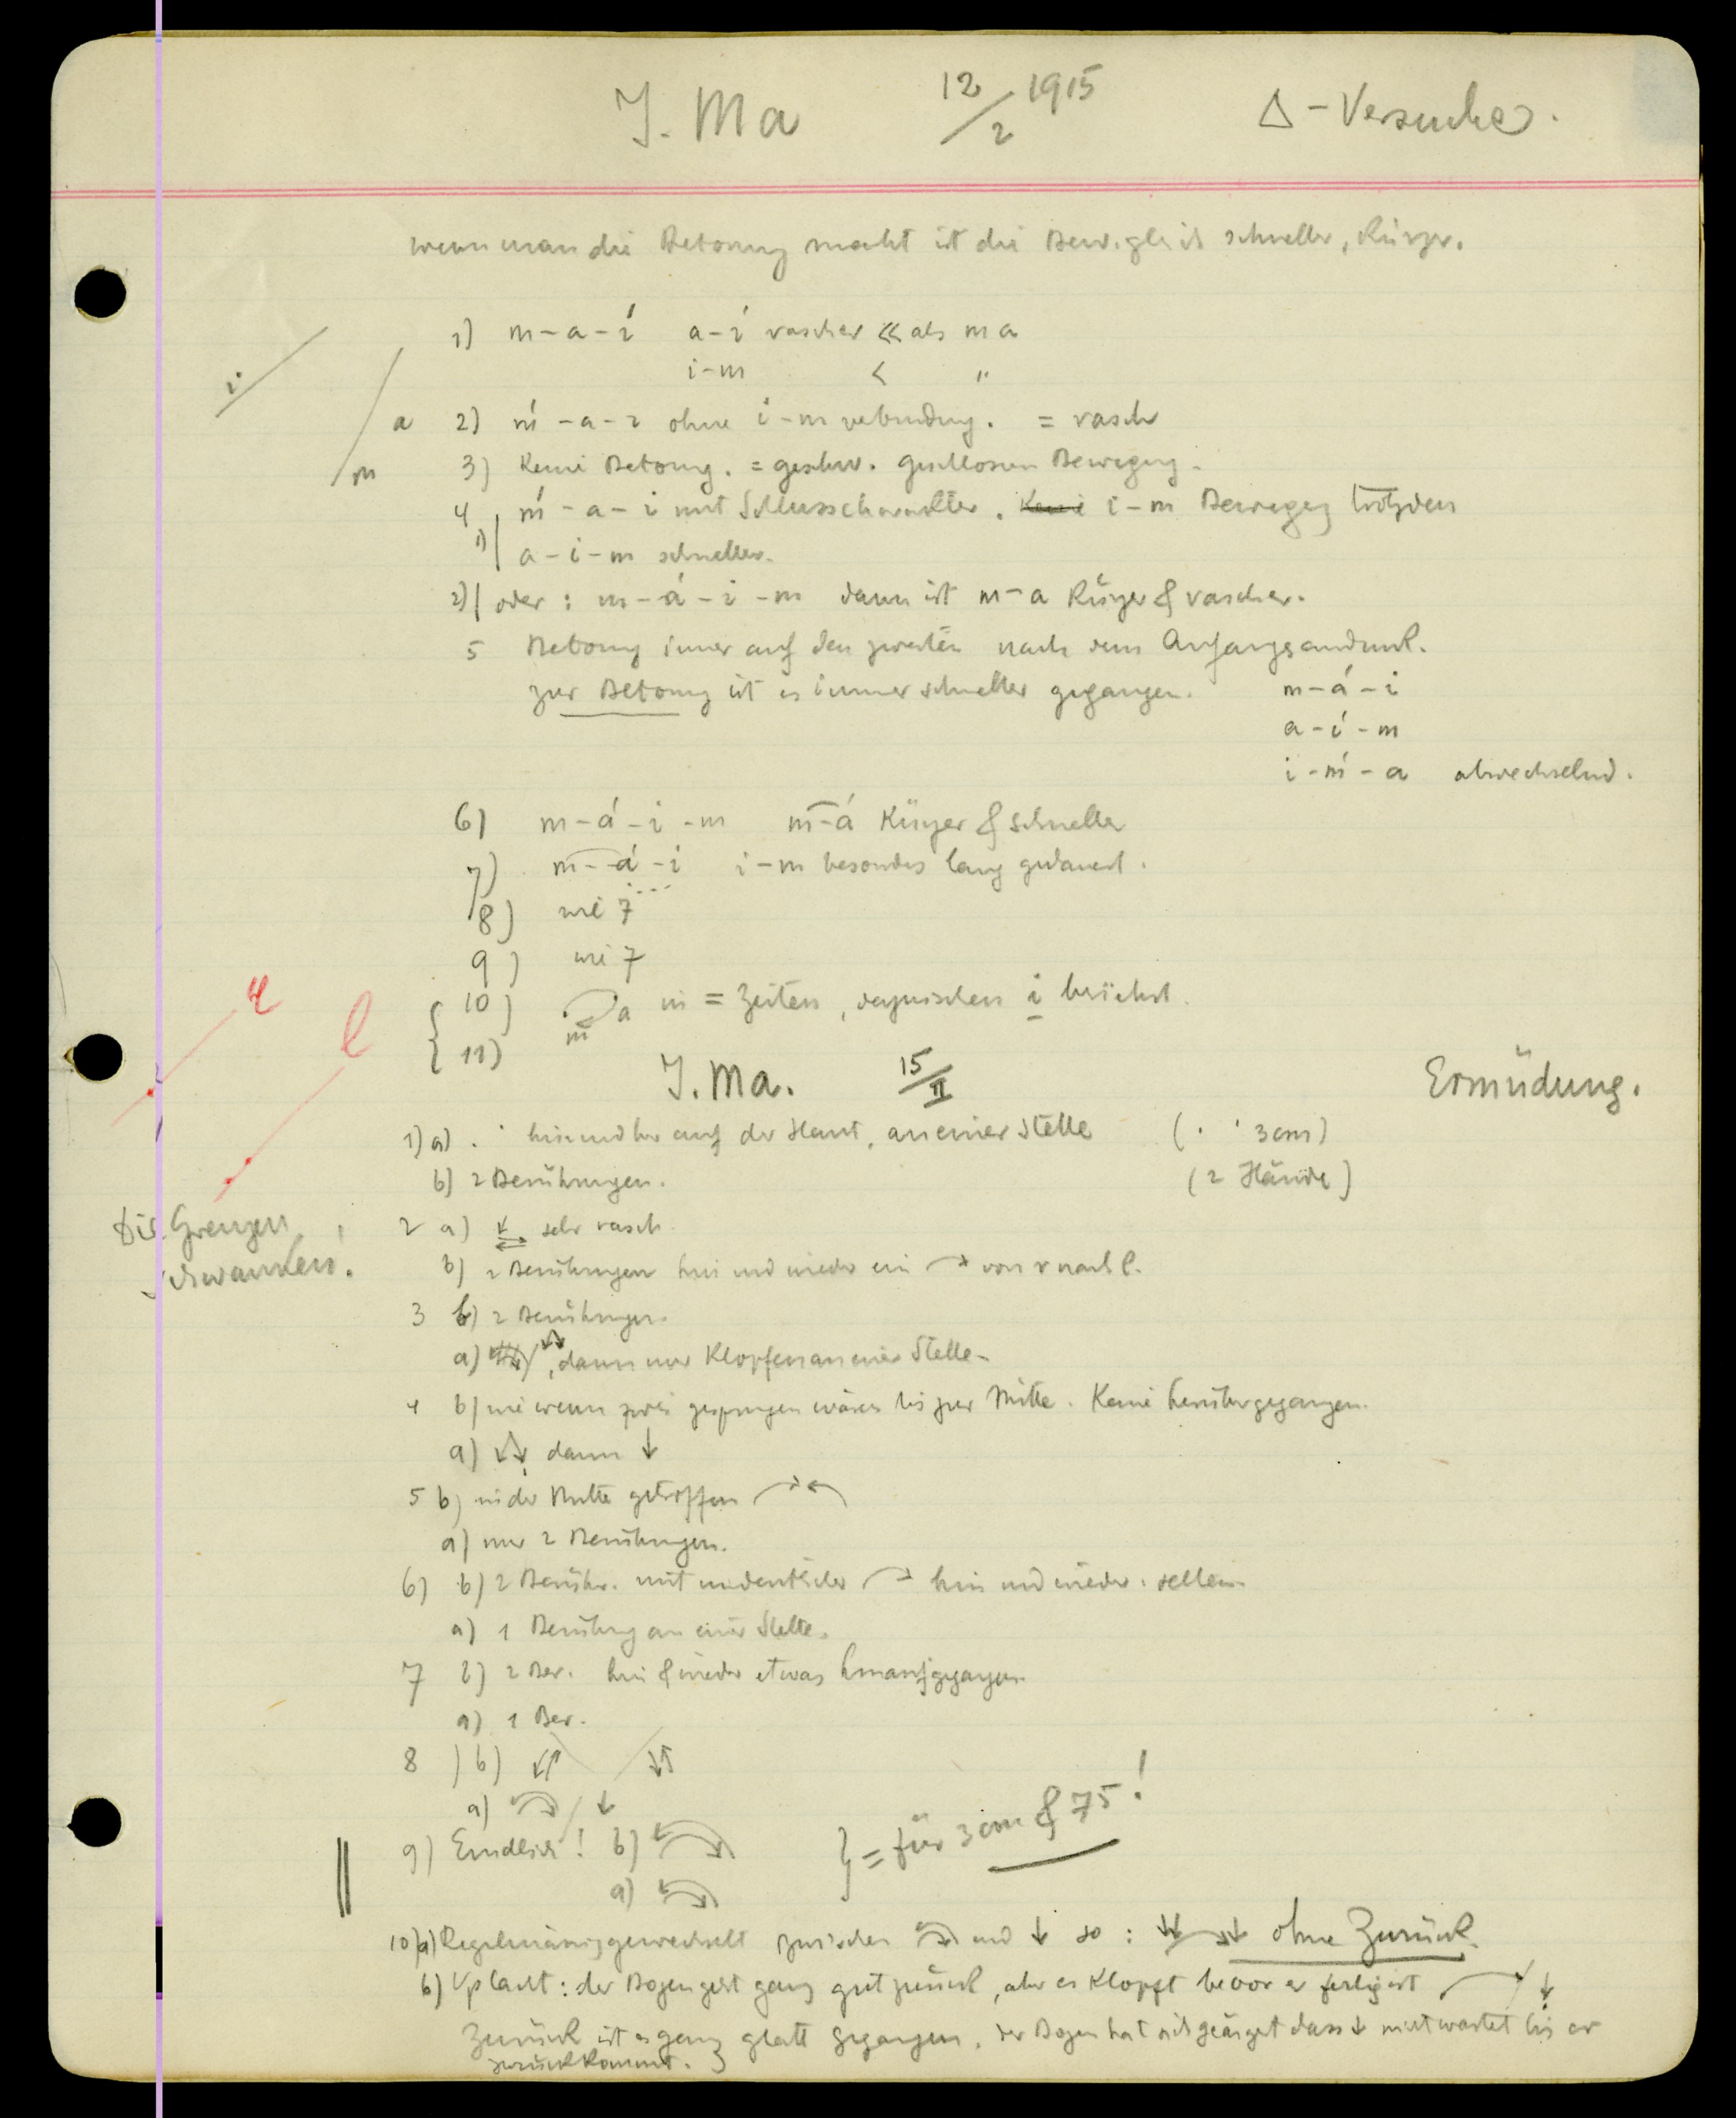 J. Ma 12/2 1915 Δ - Versuche.
wenn man die Betonung macht ist die schneller, kürzer.
1) m - a - í a - i rascher << als m a
i - m < "
i
a 2) ḿ - a - i ohne i - m verbindung. = rasch
m 3) Keine Betonung. = geschw. geschlossen Bewegung.
4 1) ḿ - a - i mit Schlusscharakter. Keine i - m Bewegung trotzdem
a - i - m schneller.
2) oder : m - á - i - m dann ist m - a kürzer & rascher.
5 Betonung immer auf den zweiten nach dem Anfangseindruck.
zur Betonung ist es immer schneller gegangen. m - á - i
a - í - m
i - ḿ - a abwechselnd.
6) m - á - i - m m - á Kürzer & schneller
7) m - á - i i - m besonders lang gedauert.
8) wie 7
9) wie 7
10) m a in = Zeiten, dazwischen i
11)
r
l
J. Ma. 15/II Ermüdung.
1) a) . · hin und her auf der Haut, an einer Stelle ( . · 3 cm)
b) 2 Berührungen. (2 Hände)
Die Grenzen
schwanken!
2 a) ↙ ⇄ sehr rasch.
b) 2 Berührungen hin und wieder ein → von r nach l.
3 b) 2 Berührungen.
a) , dann nur Klopfen an einer Stelle.
4 b) wie wenn zwei gesprungen wären bis zur Mitte. Keine herübergegangen.
a) ↙↘ dann ↓
5 b) in der Mitte getroffen → ←
a) nur 2 Berührungen.
6) b) 2 Berühr. mit undeutlicher → hin und wieder. selten.
a) 1 Berührung an einer Stelle.
7 b) 2 Ber. hin & wieder etwas hinaufgegangen
a) 1 Ber.
8) b) ↓↑ ↓↑
a) ↓
9) Endlich! b)
a)
} = für 3 cm & 75!
10) a) Regelmässig gewechselt zwischen und ↓ so : ohne Zurück.
b) Vp lacht : der Bogen geht ganz gut zurück, aber es Klopft bevor er fertig ist ↓
Zurück ist es ganz glatt gegangen. der Bogen hat sich geärgert dass ↓ nicht wartet bis er
zurückkommt.